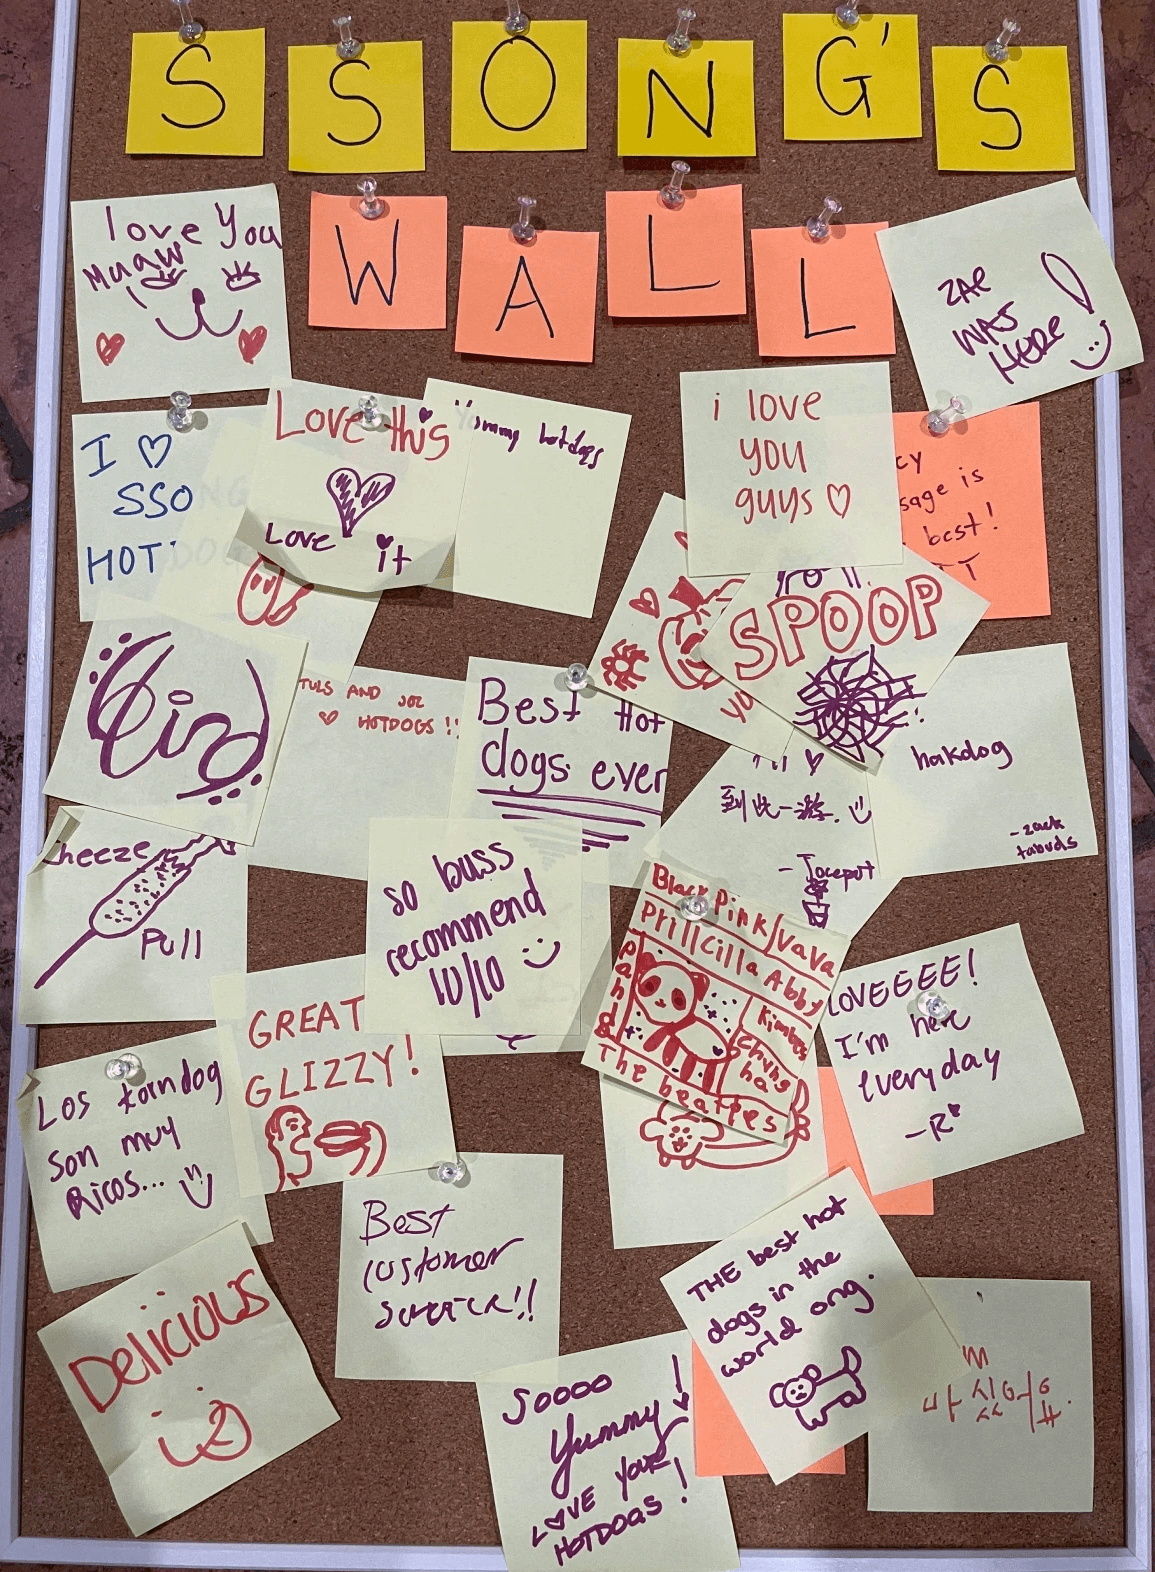 SSONG'S
WALL
love You
MUAW
ZAE
WAS
HERE
I ♡
SSO
HOT
Love this
Love it
Yummy hotdogs
i love
you
guys ♡
CY
sage is
best!
SPOOP
AND
♡ HOTDOGS !!
Best Hot
dogs ever
到此一游.
hakdog
-zack
tabuds
cheeze
Pull
so buss
recommend
10/10
Black Pink/vava
Prillcilla Abby
panda
The beatpes
LOVEEEE!
I'm here
everyday
-R
GREAT
GLIZZY!
Los korndog
son muy
Ricos...
Best
customer
service!!
THE best hot
dogs in the
world omg.
Delicious
Soooo
Yummy!
LOVE your
HOTDOGS!